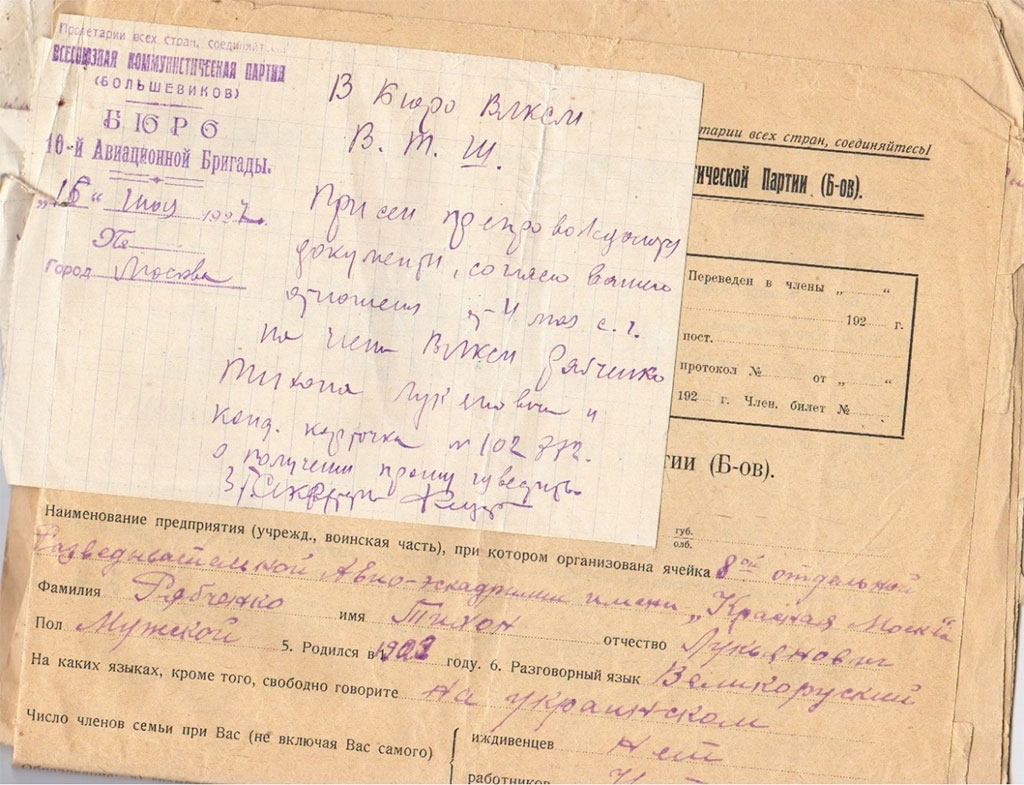 Пролетарии всех стран, соединяйтесь
ВСЕСОЮЗНАЯ КОММУНИСТИЧЕСКАЯ ПАРТИЯ
(БОЛЬШЕВИКОВ)
БЮРО
10-й Авиационной Бригады.
„16“ 192
№
Город Москва
В Бюро ВЛКСМ
В. Т. Ш.
При сем препровождаю
документы, согласно вашего
отношения от 4 мая с. г.
на члена ВЛКСМ Рябченко
Тихона Лукьяновича и
канд. карточка № 102772.
о получении прошу уведомить
тарии всех стран, соединяйтесь!
ической Партии (Б-ов).
Переведен в члены „ “
192 г.
пост.
протокол № от „ “
192 г. Член. билет №
ии (Б-ов).
губ.
обл.
Наименование предприятия (учрежд., воинская часть), при котором организована ячейка 8ой отдельной
Разведывательной Авио-эскадрильи имени „Красная Москва
Фамилия Рябченко имя Тихон отчество Лукьянович
Пол Мужской 5. Родился в году. 6. Разговорный язык Великоруский
На каких языках, кроме того, свободно говорите на украинском
Число членов семьи при Вас (не включая Вас самого)
иждивенцев нет
работников